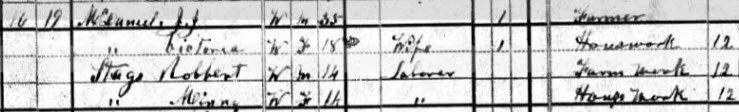 16 19 McDaniel J. J. W M 35 1 Farmer
" Victoria W F 18 Wife 1 Housework 12
Stags Robbert W M 14 Laborer Farm work 12
" Minny W F 14 " Hous work 12